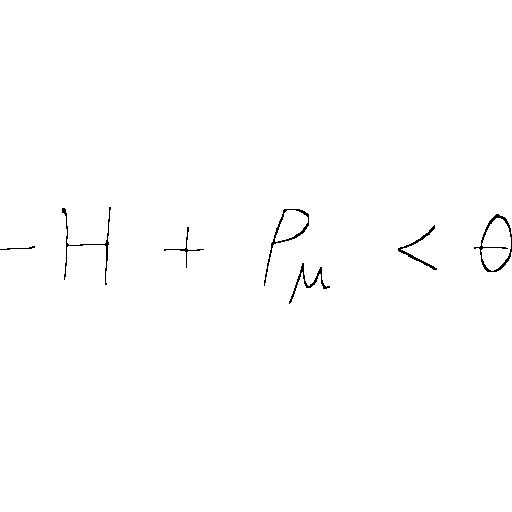 - H + P_μ < θ